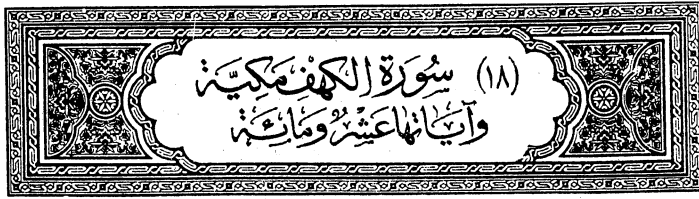 (١٨) سُورَةِ الكهْفِ مَكيَّة
وَآيَاتهَاعَشْرٌ وَمَائِة